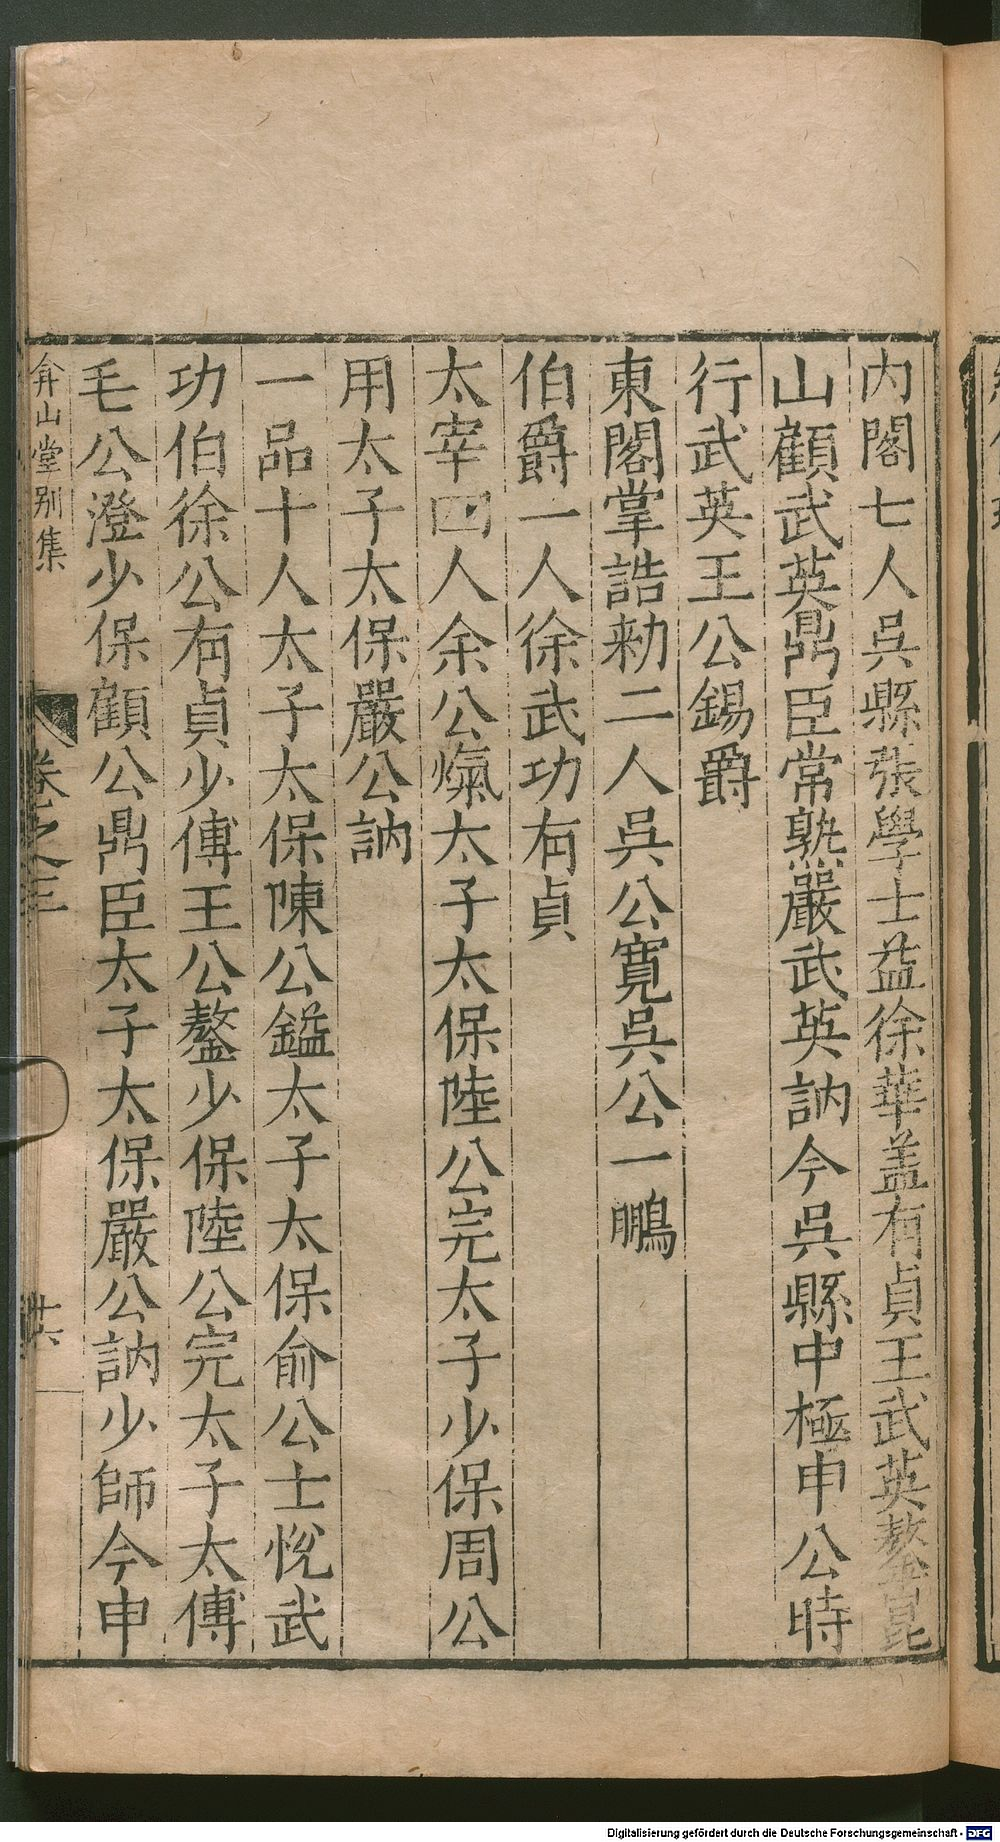 內閣七人吳縣張學士益徐華盖有貞王武英鏊崑
山顧武英鼎臣常熟嚴武英訥今吳縣中極申公時
行武英王公錫爵
東閣掌誥勑二人吳公寬吳公一鵬
伯爵一人徐武功有貞
太宰四人余公熂太子太保陸公完太子少保周公
用太子太保嚴公訥
一品十人太子太保陳公鎰太子太保俞公士悅武
功伯徐公有貞少傅王公鏊少保陸公完太子太傅
毛公澄少保顧公鼎臣太子太保嚴公訥少師今申
弇山堂别集
卷之三
廿六
Digitalisierung gefördert durch die Deutsche Forschungsgemeinschaft - DFG